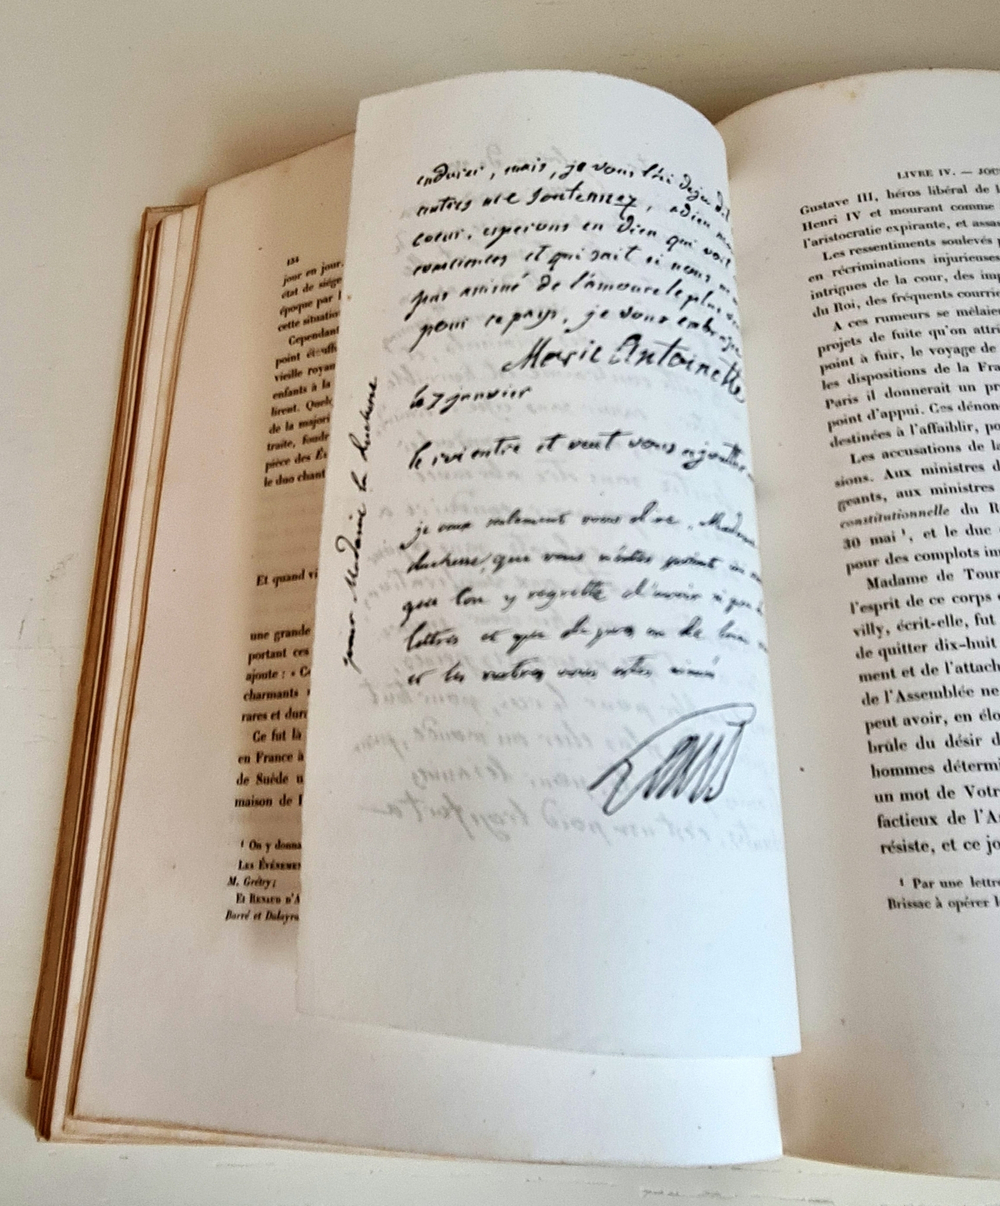 134
jour en jour.
état de siége
époque par l
cette situatio
Cependant
point étouff
vieille royau
enfants à la
lirent. Quelq
de la majori
traite, foudr
pièce des Év
le duo chant
Et quand vi
une grande
portant ces
ajoute : « Ce
charmants
rares et dure
Ce fut là
en France à
de Suède u
maison de l
¹ On y donna
LES ÉVÉNEMEN
M. Grétry;
Et RENAUD D'A
Barré et Dalayra
endurer, mais, je vous l'ai deja dit
nous
coeur, esperons en dieu qui voit
consciences et qui sait si nous
pas animé de l'amour le plus
pour ce pays, je vous embrasse
Marie Antoinette
le 7 janvier
le roi entre et veut vous ajoutter
je veux seulement vous dire, Madame
duchesse, que vous n'êtes point
que l'on y regrette d'avoir si peu
lettres et que de pres ou de loin
et les votres vous etes aimé
Louis
pour Madame la duchesse
LIVRE IV. — JOU
Gustave III, héros libéral de l
Henri IV et mourant comme
l'aristocratie expirante, et assa
Les ressentiments soulevés p
en récriminations injurieuses
intrigues de la cour, des imp
du Roi, des fréquents courrie
A ces rumeurs se mêlaien
projets de fuite qu'on attri
point à fuir, le voyage de
les dispositions de la Fra
Paris il donnerait un pr
point d'appui. Ces dénon
destinées à l'affaiblir, po
Les accusations de la
sions. Aux ministres d
geants, aux ministres
constitutionnelle du R
30 mai ¹, et le duc
pour des complots im
Madame de Tour
l'esprit de ce corps
villy, écrit-elle, fut
de quitter dix-huit
ment et de l'attach
de l'Assemblée ne
peut avoir, en élo
brûle du désir d
hommes détermi
un mot de Votr
factieux de l'As
résiste, et ce jo
¹ Par une lettre
Brissac à opérer l